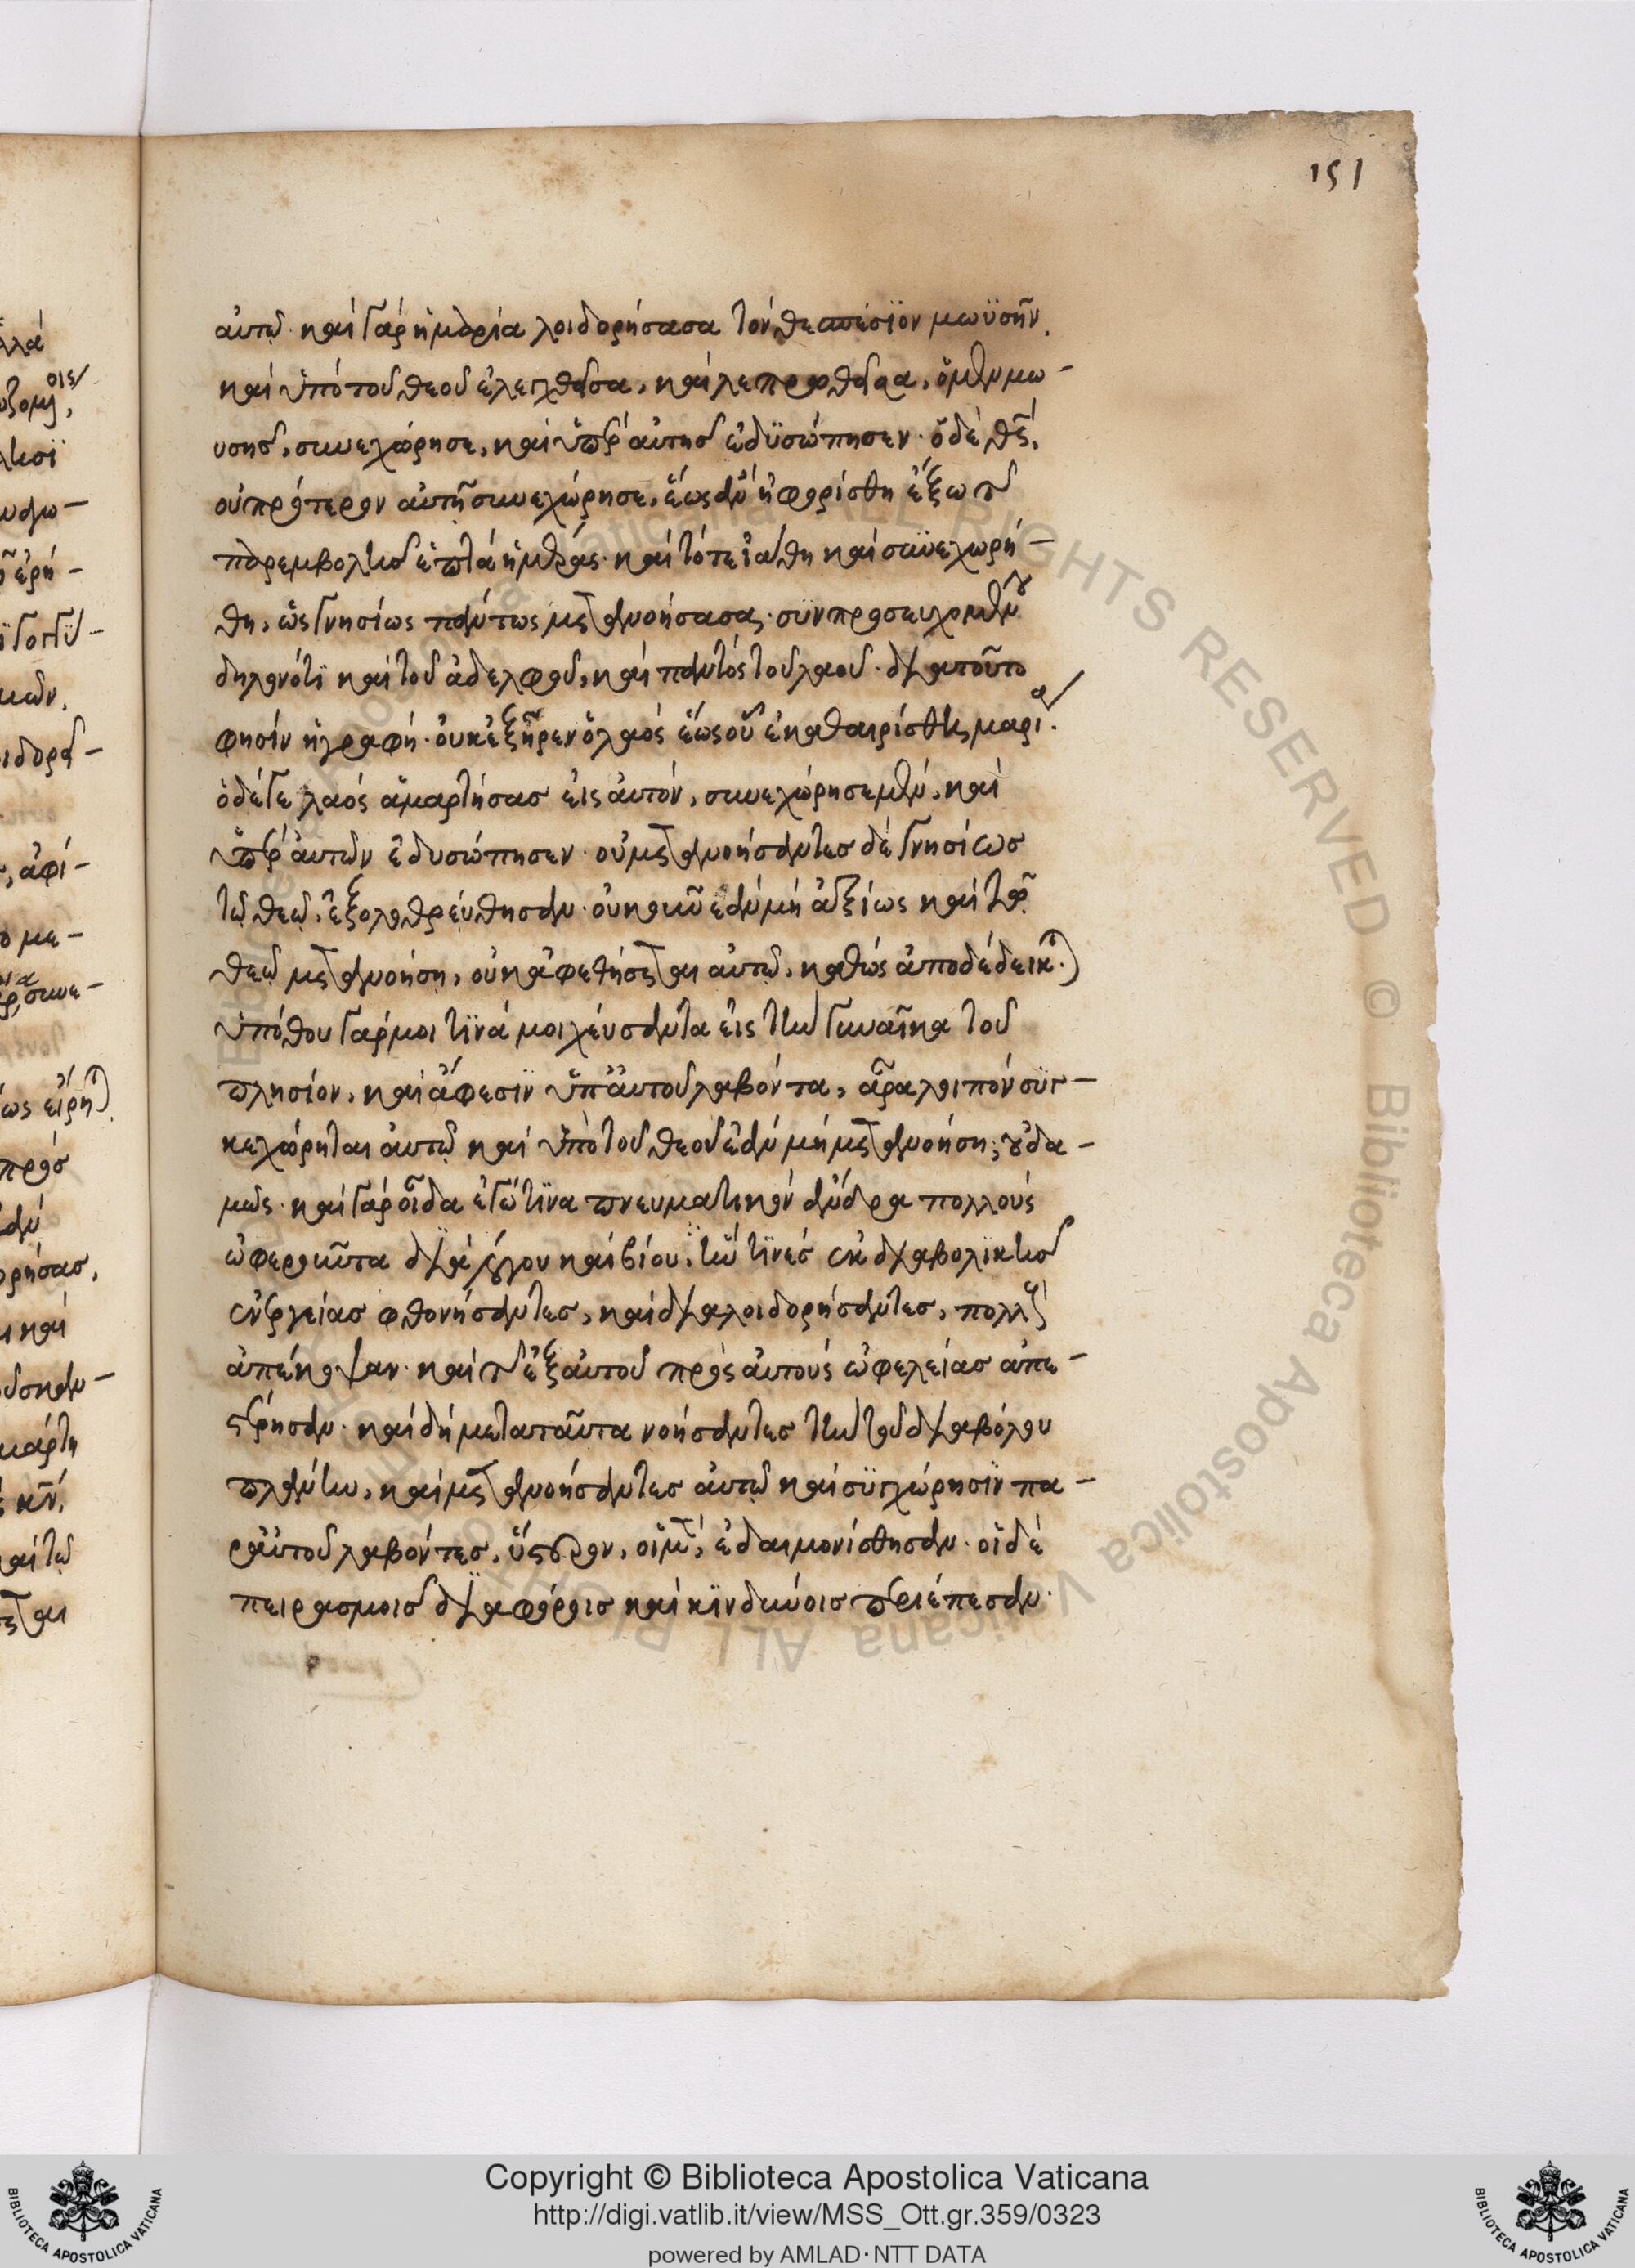 151
αὐτῷ· καὶ γὰρ ἡ μαρία λοιδορήσασα τὸν θεσπέσϊον μωϋσῆν.
καὶ ὑπὸ τοῦ θεοῦ ἐλεγχθεῖσα, καὶ λεπρωθεῖσα, ὁ μὲν μω-
υσῆς, συνεχώρησε, καὶ ὑπὲρ αὐτῆς ἐδϋσώπησεν· ὁ δὲ θς,
οὐ πρότερον αὐτῇ συνεχώρησε, ἕως ἂν ἠφορίσθη ἔξω τῆς
παρεμβολῆς ἑπτὰ ἡμέρας· καὶ τότε ἰάθη καὶ συνεχωρή-
θη, ὡς γνησίως πάντως μετανοήσασα· συνπροσευχομένου
δηλονότι καὶ τοῦ ἀδελφοῦ, καὶ παντὸς τοῦ λαοῦ· διατοῦτο
φησὶν ἡ γραφή· οὐκ ἐξῆρεν ὁ λαὸς ἕως οὗ ἐκαθαιρίσθη μαρία·
ὁ δέ γε λαὸς ἁμαρτήσας εἰς αὐτόν, συνεχώρησε μέν, καὶ
ὑπὲρ αὐτῶν ἐδυσώπησεν· οὐ μετανοήσαντες δὲ γνησίως
τῷ θεῷ, ἐξολοθρεύθησαν· οὐκοῦν ἐὰν μὴ ἀξίως καὶ τῷ
θεῷ μετανοήσῃ, οὐκ ἀφεθήσεται αὐτῷ, καθὼς ἀποδέδεικται·
ὑπόθου γάρ μοι τϊνὰ μοιχεύσαντα εἰς τὴν γυναῖκα τοῦ
πλησίον, καὶ ἄφεσϊν ὑπ' αὐτοῦ λαβόντα, ἆρα λοιπὸν συγ-
κεχώρηται αὐτῷ καὶ ὑπὸ τοῦ θεοῦ ἐὰν μὴ μετανοήσῃ; οὐδα-
μῶς· καὶ γὰρ οἶδα ἐγώ τϊνα πνευματικὸν ἄνδρα πολλοὺς
ὠφελοῦντα διὰ λόγου καὶ βίου· ὧν τϊνὲς ἐκ διαβολϊκῆς
ἐνεργείας φθονήσαντες, καὶ διαλοιδορήσαντες, πολλοὺς
ἀπέκοψαν· καὶ τῆς ἐξ αὐτοῦ πρὸς αὐτοὺς ὠφελείας ἀπε-
στέρησαν· καὶ δὴ μετὰ ταῦτα νοήσαντες τὴν τοῦ διαβόλου
πλάνην, καὶ μετανοήσαντες αὐτῷ καὶ συγχώρησϊν πα-
ρ' αὐτοῦ λαβόντες, ὕστερον, οἱ μὲν, ἐδαιμονίσθησαν· οἱ δὲ
πειρασμοῖς διαφόροις καὶ κϊνδύνοις περιέπεσαν·
Copyright © Biblioteca Apostolica Vaticana
http://digi.vatlib.it/view/MSS_Ott.gr.359/0323
powered by AMLAD·NTT DATA